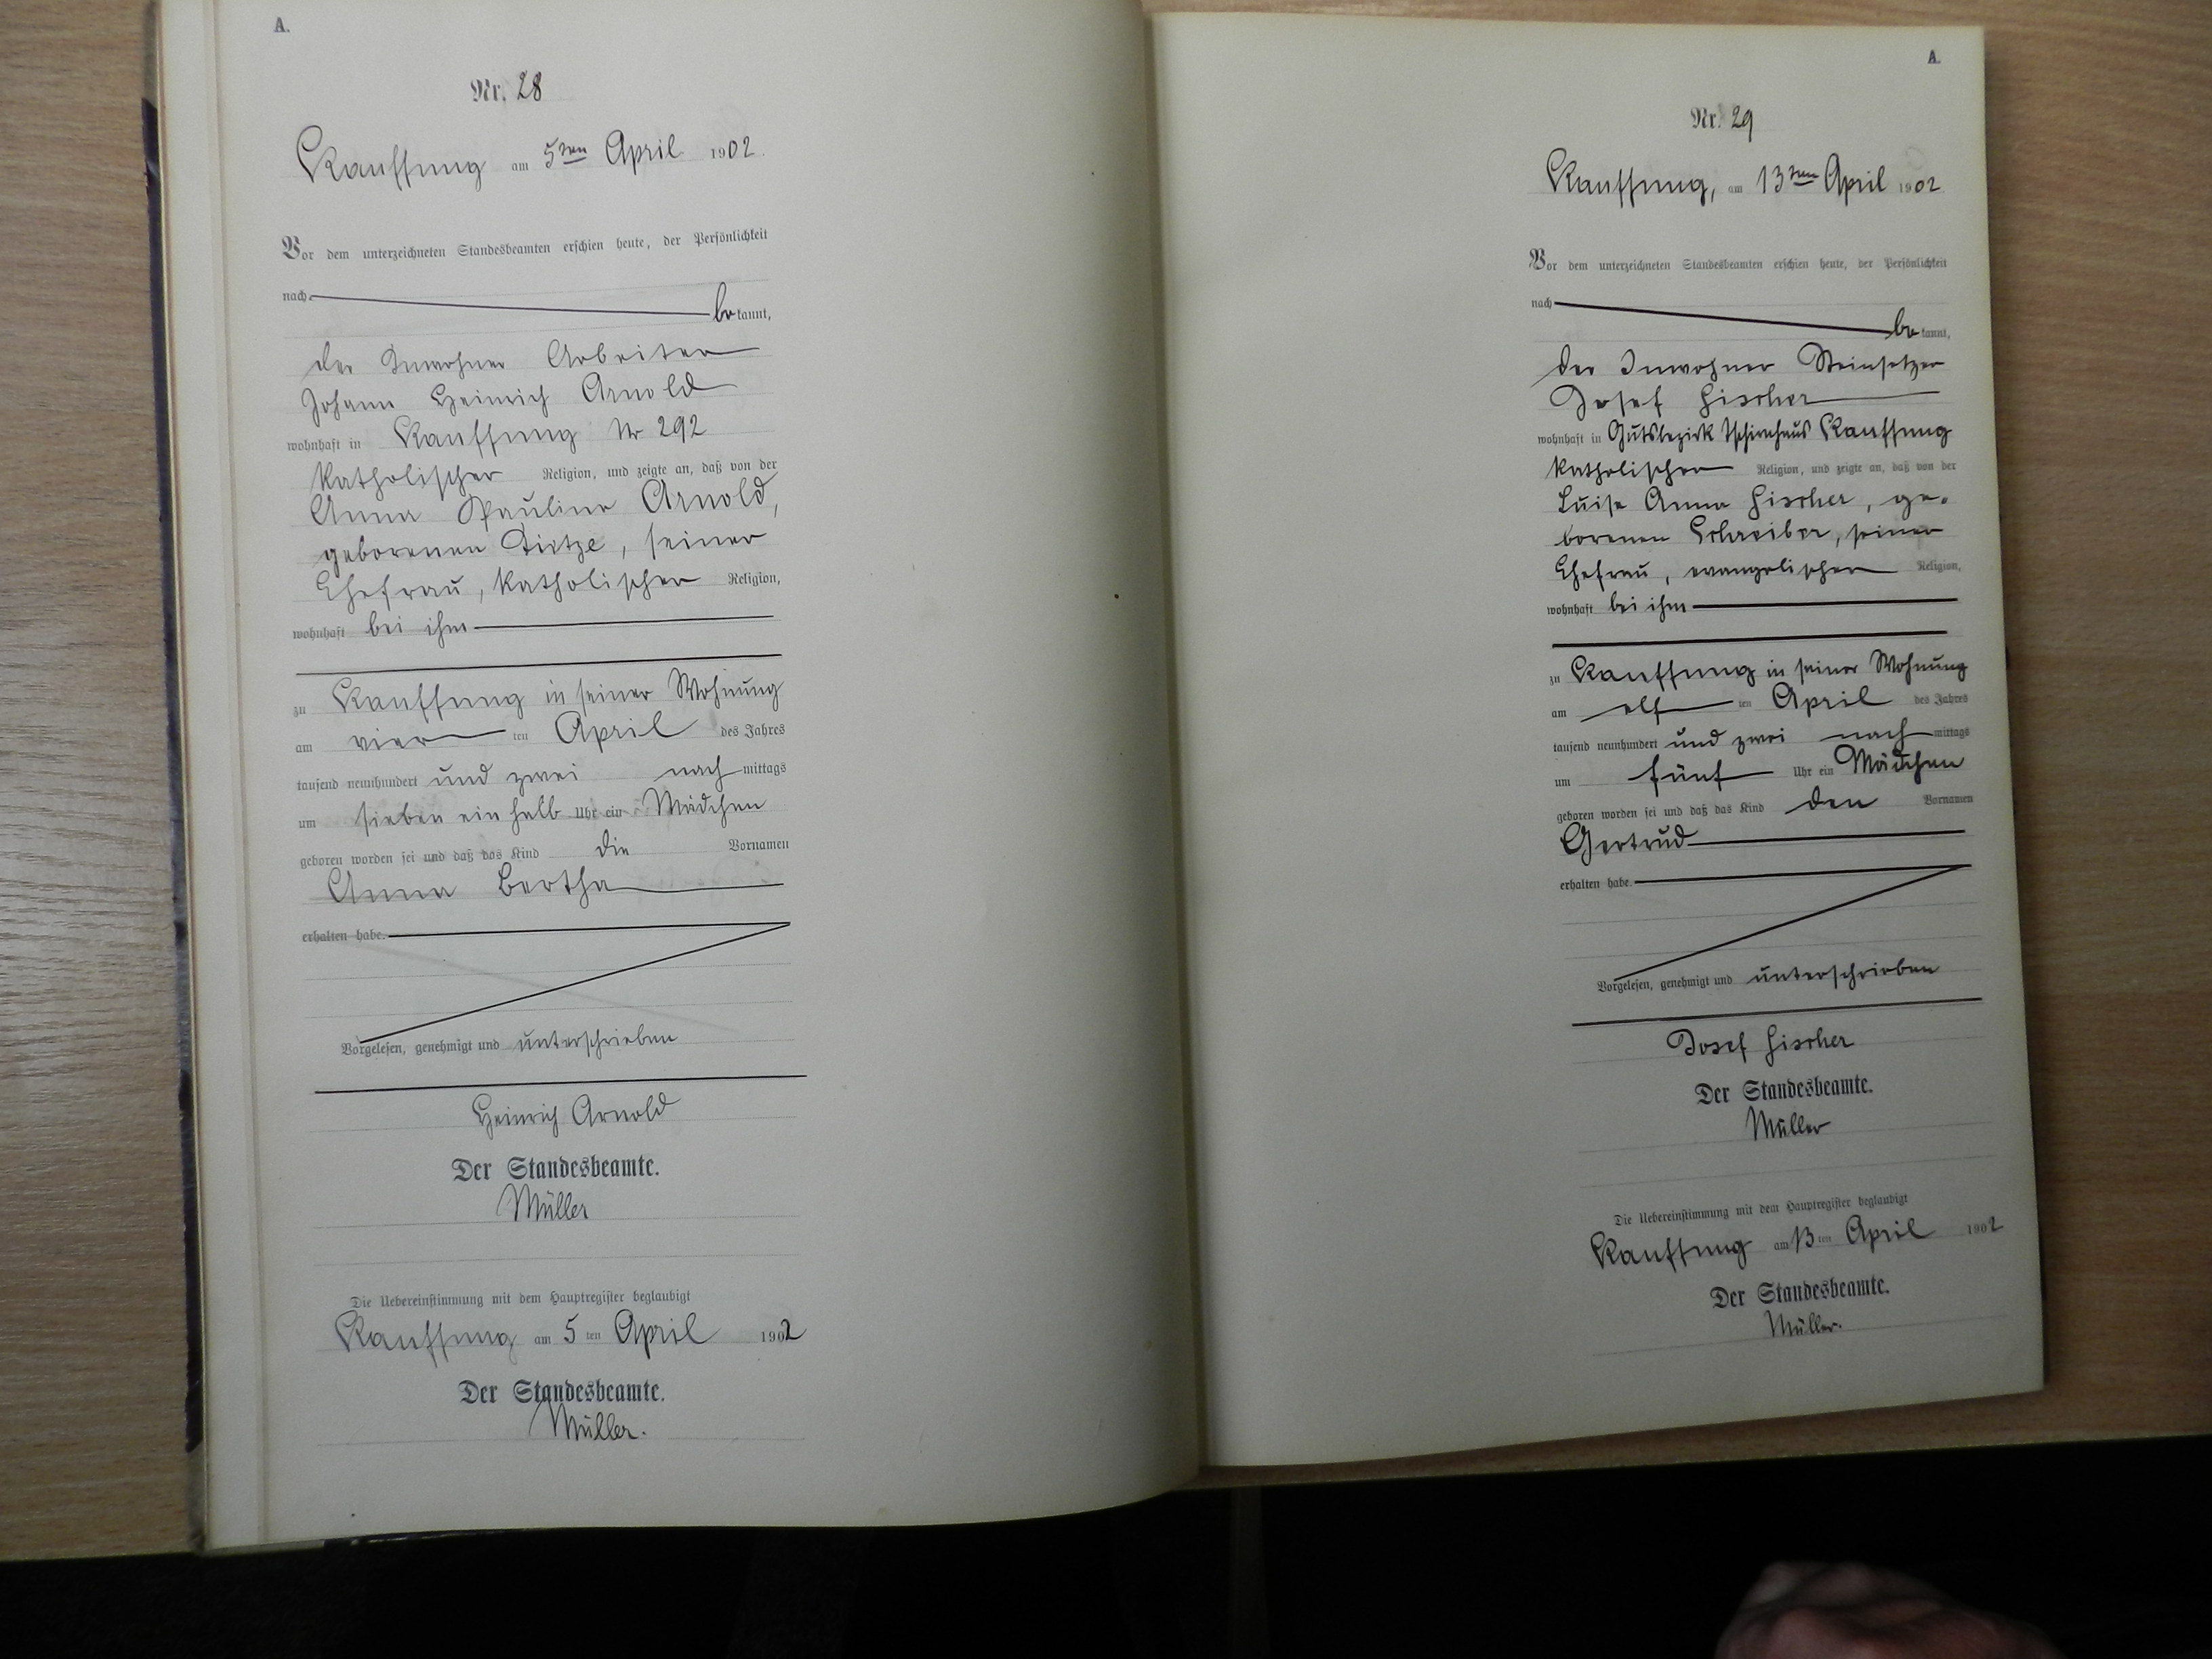 A.
Nr. 28
Kauffung am 5ten April 1902.
Vor dem unterzeichneten Standesbeamten erschien heute, der Persönlichkeit
nach
bekannt,
der Inwohner Arbeiter
Johann Heinrich Arnold
wohnhaft in Kauffung Nr 292
katholischer Religion, und zeigte an, daß von der
Anna Pauline Arnold,
geborenen Dietze, seiner
Ehefrau, katholischer Religion,
wohnhaft bei ihm
zu Kauffung in seiner Wohnung
am vier ten April des Jahres
tausend neunhundert und zwei nach mittags
um sieben ein halb Uhr ein Mädchen
geboren worden sei und daß das Kind die Vornamen
Anna Bertha
erhalten habe.
Vorgelesen, genehmigt und unterschrieben
Heinrich Arnold
Der Standesbeamte.
Müller
Die Uebereinstimmung mit dem Hauptregister beglaubigt
Kauffung am 5 ten April 1902
Der Standesbeamte.
Müller.
A.
Nr. 29
Kauffung, am 13ten April 1902
Vor dem unterzeichneten Standesbeamten erschien heute, der Persönlichkeit
nach
bekannt,
der Inwohner Steinsetzer
Josef Fischer
wohnhaft in Gutsbezirk Tschirnhaus Kauffung
katholischer Religion, und zeigte an, daß von der
Luise Anna Fischer, ge-
borenen Schreiber, seiner
Ehefrau, evangelischer Religion,
wohnhaft bei ihm
zu Kauffung in seiner Wohnung
am elf ten April des Jahres
tausend neunhundert und zwei nach mittags
um fünf Uhr ein Mädchen
geboren worden sei und daß das Kind den Vornamen
Gertrud
erhalten habe.
Vorgelesen, genehmigt und unterschrieben
Josef Fischer
Der Standesbeamte.
Müller
Die Uebereinstimmung mit dem Hauptregister beglaubigt
Kauffung am 13 ten April 1902
Der Standesbeamte.
Müller.